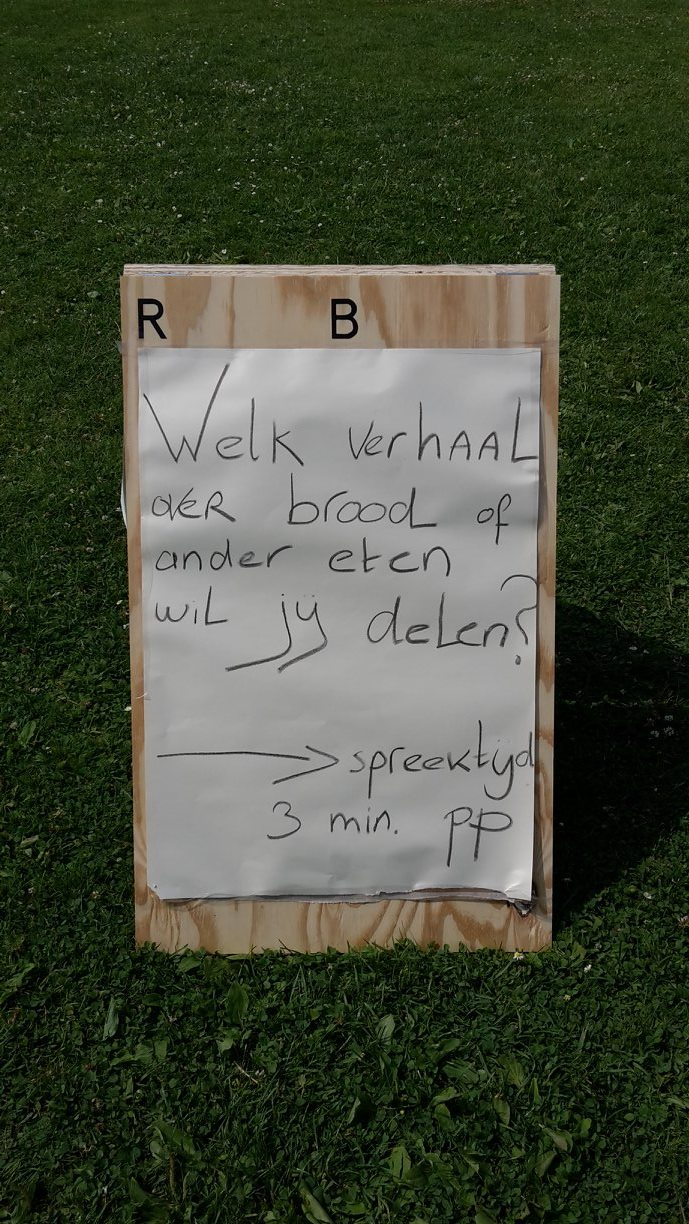 R B
Welk verhAAL
oVeR brood of
ander eten
wiL jij deLen?
→ spreektijd
3 min. pp